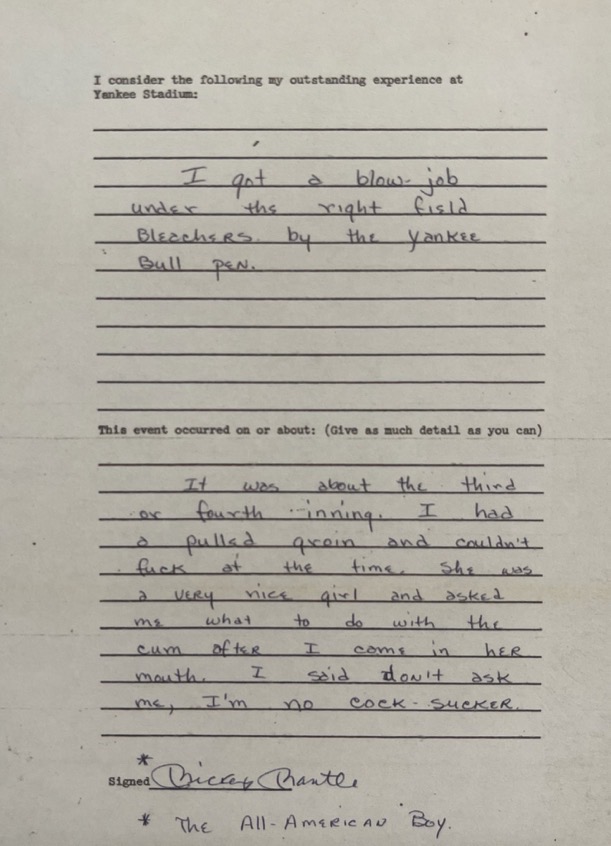 I consider the following my outstanding experience at
Yankee Stadium:
I got a blow-job
under the right field
Bleachers by the Yankee
Bull pen.
This event occurred on or about: (Give as much detail as you can)
It was about the third
or fourth inning. I had
a pulled groin and couldn't
fuck at the time. She was
a very nice girl and asked
me what to do with the
cum after I come in her
mouth. I said don't ask
me, I'm no cock-sucker.
*
Signed Mickey Mantle
* The All-American Boy.